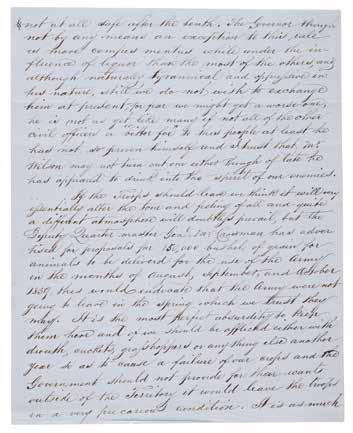 not at all safe after the death. The Governor though
not by any means an exception to this, rule
is more compus mentus while under the in-
fluence of liquor than the most of the others and
although naturally tyrannical and oppressive in
his nature, still we do not wish to exchange
him at present for fear we might get a worse one,
he is not as yet like many if not all of the other
civil officers a "bitter foe" to this people at least he
has not so proven himself and I trust that Mr
Wilson may not turn out one either though of late he
has appeared to drink into the spirit of our enemies.
If the Troops should leave we think it will very
essentially alter the tone and feeling of all and quite
a different atmosphere will doubtless prevail, but the
Deputy Quarter master Genl. Crosman has adver
tised for proposals for 150,000 bushel of grain for
animals to be delivered for the use of the Army
in the months of August, September, and October
1859, this would indicate that the Army were not
going to leave in the spring which we trust they
may. It is the most perfect absurdity to keep
them here and if we should be afflicted either with
drouth, crickets, grasshoppers or anything else another
year so as to cause a failure of our crops and the
Government should not provide for their wants
outside of the Territory it would leave the troops
in a very precarious condition. It is as much